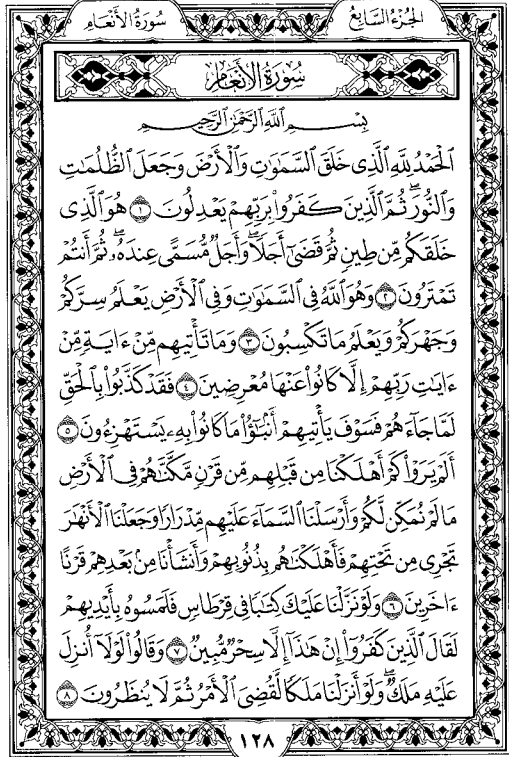 الجزء السابع
سورة الأنعام
سورة الأنعام
بِسْمِ ٱللَّهِ ٱلرَّحْمَٰنِ ٱلرَّحِيمِ
ٱلْحَمْدُ لِلَّهِ ٱلَّذِى خَلَقَ ٱلسَّمَٰوَٰتِ وَٱلْأَرْضَ وَجَعَلَ ٱلظُّلُمَٰتِ
وَٱلنُّورَ ۖ ثُمَّ ٱلَّذِينَ كَفَرُوا۟ بِرَبِّهِمْ يَعْدِلُونَ ١ هُوَ ٱلَّذِى
خَلَقَكُم مِّن طِينٍ ثُمَّ قَضَىٰٓ أَجَلًا ۖ وَأَجَلٌ مُّسَمًّى عِندَهُۥ ۖ ثُمَّ أَنتُمْ
تَمْتَرُونَ ٢ وَهُوَ ٱللَّهُ فِى ٱلسَّمَٰوَٰتِ وَفِى ٱلْأَرْضِ يَعْلَمُ سِرَّكُمْ
وَجَهْرَكُمْ وَيَعْلَمُ مَا تَكْسِبُونَ ٣ وَمَا تَأْتِيهِم مِّنْ ءَايَةٍ مِّنْ
ءَايَٰتِ رَبِّهِمْ إِلَّا كَانُوا۟ عَنْهَا مُعْرِضِينَ ٤ فَقَدْ كَذَّبُوا۟ بِٱلْحَقِّ
لَمَّا جَآءَهُمْ فَسَوْفَ يَأْتِيهِمْ أَنۢبَٰٓؤُا۟ مَا كَانُوا۟ بِهِۦ يَسْتَهْزِءُونَ ٥
أَلَمْ يَرَوْا۟ كَمْ أَهْلَكْنَا مِن قَبْلِهِم مِّن قَرْنٍ مَّكَّنَّٰهُمْ فِى ٱلْأَرْضِ
مَا لَمْ نُمَكِّن لَّكُمْ وَأَرْسَلْنَا ٱلسَّمَآءَ عَلَيْهِم مِّدْرَارًا وَجَعَلْنَا ٱلْأَنْهَٰرَ
تَجْرِى مِن تَحْتِهِمْ فَأَهْلَكْنَٰهُم بِذُنُوبِهِمْ وَأَنشَأْنَا مِنۢ بَعْدِهِمْ قَرْنًا
ءَاخَرِينَ ٦ وَلَوْ نَزَّلْنَا عَلَيْكَ كِتَٰبًا فِى قِرْطَاسٍ فَلَمَسُوهُ بِأَيْدِيهِمْ
لَقَالَ ٱلَّذِينَ كَفَرُوٓا۟ إِنْ هَٰذَآ إِلَّا سِحْرٌ مُّبِينٌ ٧ وَقَالُوا۟ لَوْلَآ أُنزِلَ
عَلَيْهِ مَلَكٌ ۖ وَلَوْ أَنزَلْنَا مَلَكًا لَّقُضِىَ ٱلْأَمْرُ ثُمَّ لَا يُنظَرُونَ ٨
١٢٨